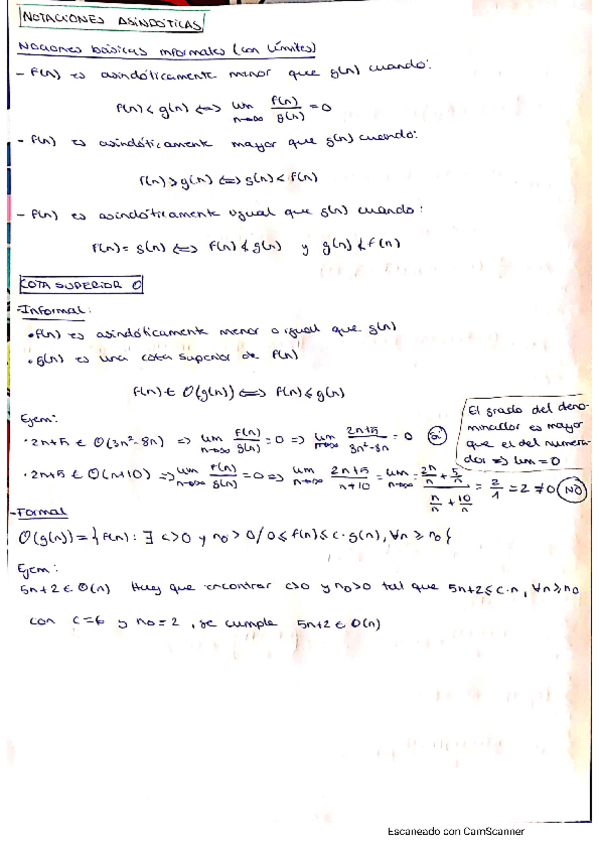 NOTACIONES ASINDÓTICAS
Nociones básicas informales (con Límites)
- f(n) es asindóticamente menor que g(n) cuando:
f(n) < g(n) <=> lim n→∞ f(n)/g(n) = 0
- f(n) es asindóticamente mayor que g(n) cuando:
f(n) > g(n) <=> g(n) < f(n)
- f(n) es asindóticamente igual que g(n) cuando:
f(n) = g(n) <=> f(n) ≮ g(n) y g(n) ≮ f(n)
COTA SUPERIOR O
- Informal:
• f(n) es asindóticamente menor o igual que g(n)
• g(n) es una cota superior de f(n)
f(n) ∈ O(g(n)) <=> f(n) ≤ g(n)
Ejem:
· 2n+5 ∈ O(3n²-8n) => lim n→∞ f(n)/g(n) = 0 => lim n→∞ 2n+5/3n²-8n = 0 Sí
El grado del deno-
minador es mayor
que el del numera-
dor => lim = 0
· 2n+5 ∈ O(n+10) => lim n→∞ f(n)/g(n) = 0 => lim n→∞ 2n+5/n+10 = lim n→∞ = 2n/n + 5/n / n/n + 10/n = 2/1 = 2 ≠ 0 NO
- Formal
O(g(n)) = { f(n): ∃ c>0 y n₀>0 / 0 ≤ f(n) ≤ c·g(n), ∀n ≥ n₀ }
Ejem:
5n+2 ∈ O(n) Hay que encontrar c>0 y n₀>0 tal que 5n+2 ≤ c·n, ∀n ≥ n₀
con c=6 y n₀=2, se cumple 5n+2 ∈ O(n)
Escaneado con CamScanner